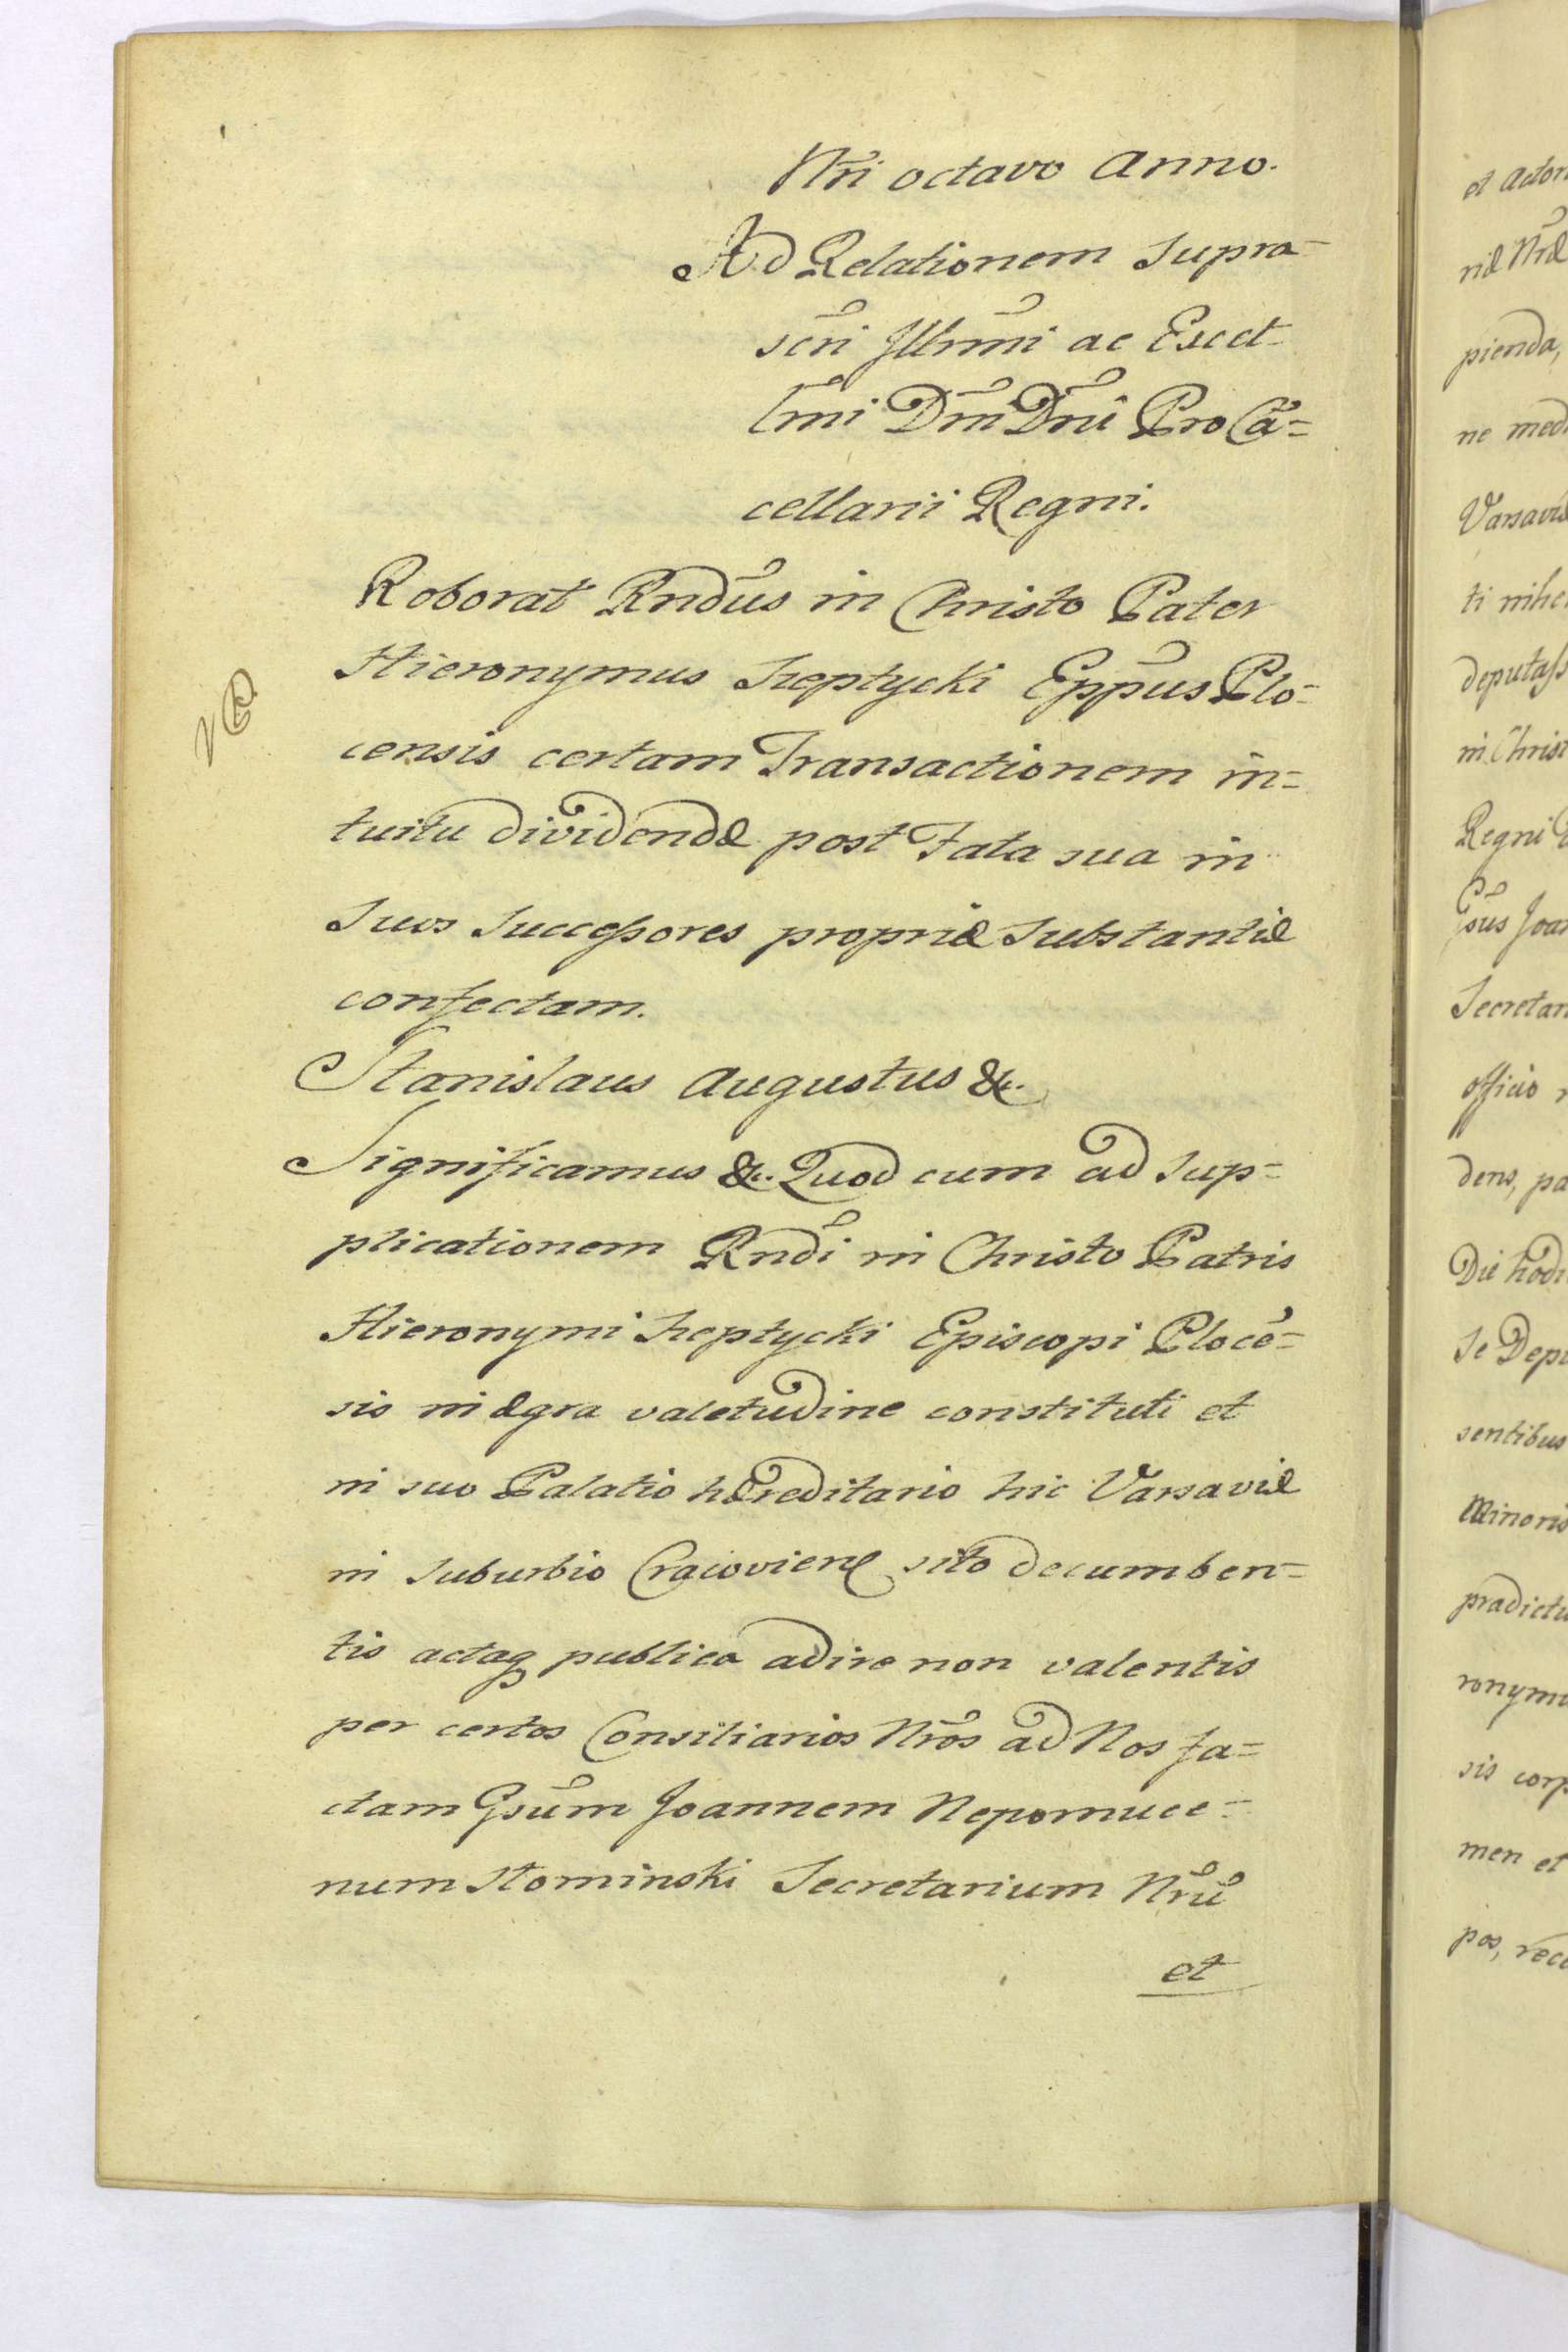 Nr̃i octavo Anno.
Ad Relationem Supra-
scr̃i Jllmm̃i ac Excel-
lm̃i Dñi Dñi Pro Cã=
cellarii Regni.
Roborat Rndũs in Christo Pater
Hieronymus Szeptycki Epp̃us Plo-
censis certam Transactionem in=
tuitu dividendæ post Fata sua in
Suos Successores propriæ Substantiæ
confectam.
Stanislaus Augustus &c.
Significamus &c. Quod cum ad Sup=
plicationem Rndĩ in Christo Patris
Hieronymi Szeptycki Episcopi Plocẽ=
sis in ægra valetudine constituti et
in suo Palatio hæreditario hic Varsaviæ
in Suburbio Cracovien̄ sito decumben=
tis actaq publica adire non valentis
per certos Consiliarios Nr̃os ad Nos fa=
ctam Gsũm Joannem Nepomuce=
num Slominski Secretarium Nr̃ũ
et
et Actor
riæ Nr̃æ
pienda,
ne med
Varsaviæ
ti nihe
deputass
in Christ
Regni
Gsũs Joan
Secretar
officio
dens, pa
Die hodi
Se Depu
sentibus
Minoris
prædictu
ronymu
sis corp
men et
pos, reco